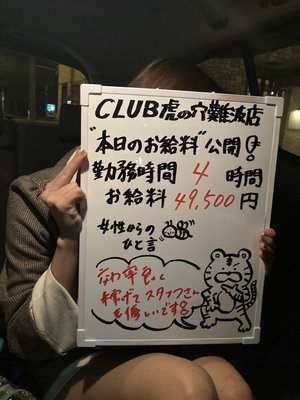 CLUB虎の穴難波店
"本日のお給料"公開!
勤務時間 4 時間
お給料 49,500円
女性からの
ひと言
効率良く
稼げて スタッフさん
も優しいです